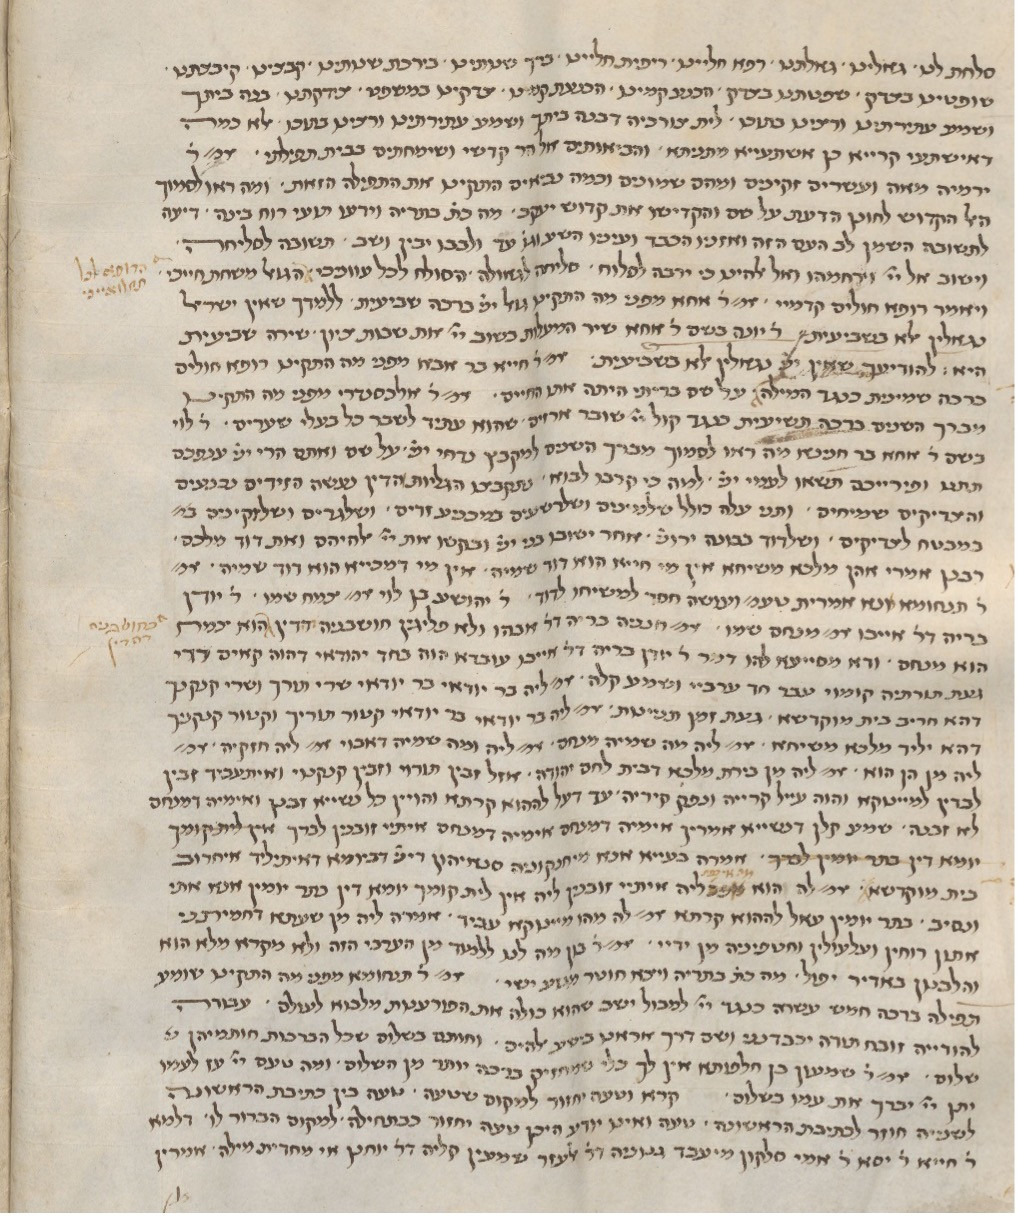 סלחת לנו · גואלינו · גאלתנו · רפא חליינו · ריפית חליינו · ברך שנותינו · בירכת שנותינו · קבצינו · קיבצתנו ·
שופטינו בצדק · שפטתנו בצדק · הכנע קמינו · הכנעת קמינו · צדקינו במשפט · צדקתנו · בנה ביתך
ושמע עתירתינו ורצינו בתוכו · לית צורכיה דבנה ביתך ושמע עתירתינו ורצינו בתוכו · לא כמה
דאישתעי קרייא כן אשתעייא מתניתא · והביאותים אל הר קדשי ושימחתים בבית תפילתי · אמ' ר'
ירמיה מאה ועשרים זקינים ומהם שמונים וכמה נביאים התקינו את התפילה הזאת · ומה ראו לסמוך
האל הקדוש לחונן הדעת על שם והקדישו את קדוש יעקב · מה כת' בתריה וידעו תועי רוח בינה · דיעה
לתשובה השמן לב העם הזה ואזניו הכבד ועיניו השע וגו' עד ולבבו יבין ושב · תשובה לסליחה ·
וישוב אל יי' וירחמהו ואל אלהינו כי ירבה לסלוח · סליחה לגאולה · הסולח לכל עוונכי הגואל משחת חייכי ·
הרופא לכל
תחלואייכי
ויאמר רופא חולים קדמיי · אמ' ר' אחא מפני מה התקינו גואל יש' ברכה שביעית · ללמדך שאין ישראל
נגאלין אלא בשביעית · ר' יונה בשם ר' אחא שיר המעלות בשוב יי' את שבות ציון · שירה שביעית
היא · להודיעך שאין יש' נגאלין אלא בשביעית · אמ' ר' חייא בר אבא מפני מה התקינו רופא חולים
ברכה שמינית כנגד המילה על שם בריתי היתה אתו החיים · אמ' ר' אלכסנדרי מפני מה התקינו
מברך השנים ברכה תשיעית כנגד קול יי' שובר ארזים · שהוא עתיד לשבר כל בעלי שערים · ר' לוי
בשם ר' אחא בר חנינא מה ראו לסמוך מברך השנים למקבץ נדחי יש' · על שם ואתם הרי יש' ענפכם
תתנו ופירייכם תשאו לעמי יש' · למה כי קרבו לבוא · נתקבצו הגליות הדין נעשה הזידים נכנעים
והצדיקים שמיחים · ותני עלה כולל שלמינים ושלרשעים במכניע זדים · ושלגרים ושלזקינים במ'
במבטח לצדיקים · ושלדוד בבונה ירוש' · אחר ישובו בני יש' ובקשו את יי' אלהיהם ואת דוד מלכם ·
רבנן אמרי אהן מלכא משיחא אין מי חייא הוא דוד שמיה · אין מי דמכייא הוא דוד שמיה · אמ'
ר' תנחומא אנא אמרית טעמ' ועושה חסד למשיחו לדוד · ר' יהושע בן לוי אמ' צמח שמו · ר' יודן
בריה דר' אייבו אמ' מנחם שמו · אמ' חנניה בריה דר' אבהו ולא פליגין חושבניה דדין הוא צמח
הוא מנחם · ודא מסייעא להו דמר ר' יודן בריה דר' אייבו עובדא הוה בחד יהודאי דהוה קאים רדי
געת תורתיה קומוי עבר חד ערביי ושמע קלה · אמ' ליה בר יודאי בר יודאי שרי תורך ושרי קנקנך
דהא חריב בית מוקדשא · געת זמן תניינות · אמ' ליה בר יודאי בר יודאי קטור תוריך וקטור קנקניך
דהא יליד מלכא משיחא · אמ' ליה מה שמיה מנחם · אמ' ליה ומה שמיה דאבוי אמ' ליה חזקיה · אמ'
ליה מן הן הוא · אמ' ליה מן בירת מלכא דבית לחם יהודה · אזל זבין תורוי וזבין קנקנוי ואיתעביד זבין
לבדין למייטקא והוה עייל קרייה ונפק קיריה · עד דעל לההוא קרתא והויין כל נשייא זבנן ואימיה דמנחם
לא זבנה · שמע קלן דנשייא אמרין אימיה דמנחם אימיה דמנחם איתיי זובנין לברך
יומא דין בתר יומין לברך · אמרה בעייא אנא מיחנקוניה סנאיהון דיש' דביומא דאיתיליד איחרוב
בית מוקדשא · אמ' לה הוא ליה איתיי זובנין ליה אין לית קומך יומא דין בתר יומין אנא אתי
ונסיב · בתר יומין עאל לההוא קרתא אמ' לה מהו מייטקא עביד · אמרה ליה מן שעתא דחמיתני
אתון רוחין ועלעולין וחטפיניה מן ידיי · אמ' ר' בון מה לנו ללמוד מן הערבי הזה ולא מקרא מלא הוא
והלבנון באדיר יפול · מה כת' בתריה ויצא חוטר מגזע ישי · אמ' ר' תנחומא מפני מה התקינו שומע
תפילה ברכה חמש עשרה כנגד יי' למבול ישב שהוא כולה את הפורענות מלבוא לעולם · עבודה
להודייה זובח תודה יכבדנני ושם דרך אראנו בישע אלהים · וחותם בשלום שכל הברכות חותמיהן
שלום · אמ' ר' שמעון בן חלפותא אין לך כלי שמחזיק ברכה יותר מן השלום · ומה טעם יי' עז לעמו
יתן יי' יברך את עמו בשלום · קרא וטעה יחזור למקום שטעה · טעה בין כתיבה הראשונה
לשנייה חוזר לכתיבה הראשונה · טעה ואינו יודע היכן טעה יחזור כבתחילה · למקום הברור לו · דלמא
ר' חייא ר' יסא ר' אמי סלקון מיעבד גנוניה דר' לעזר שמעין קליה דר' יוחנן אי מחדית מילה · אמרין